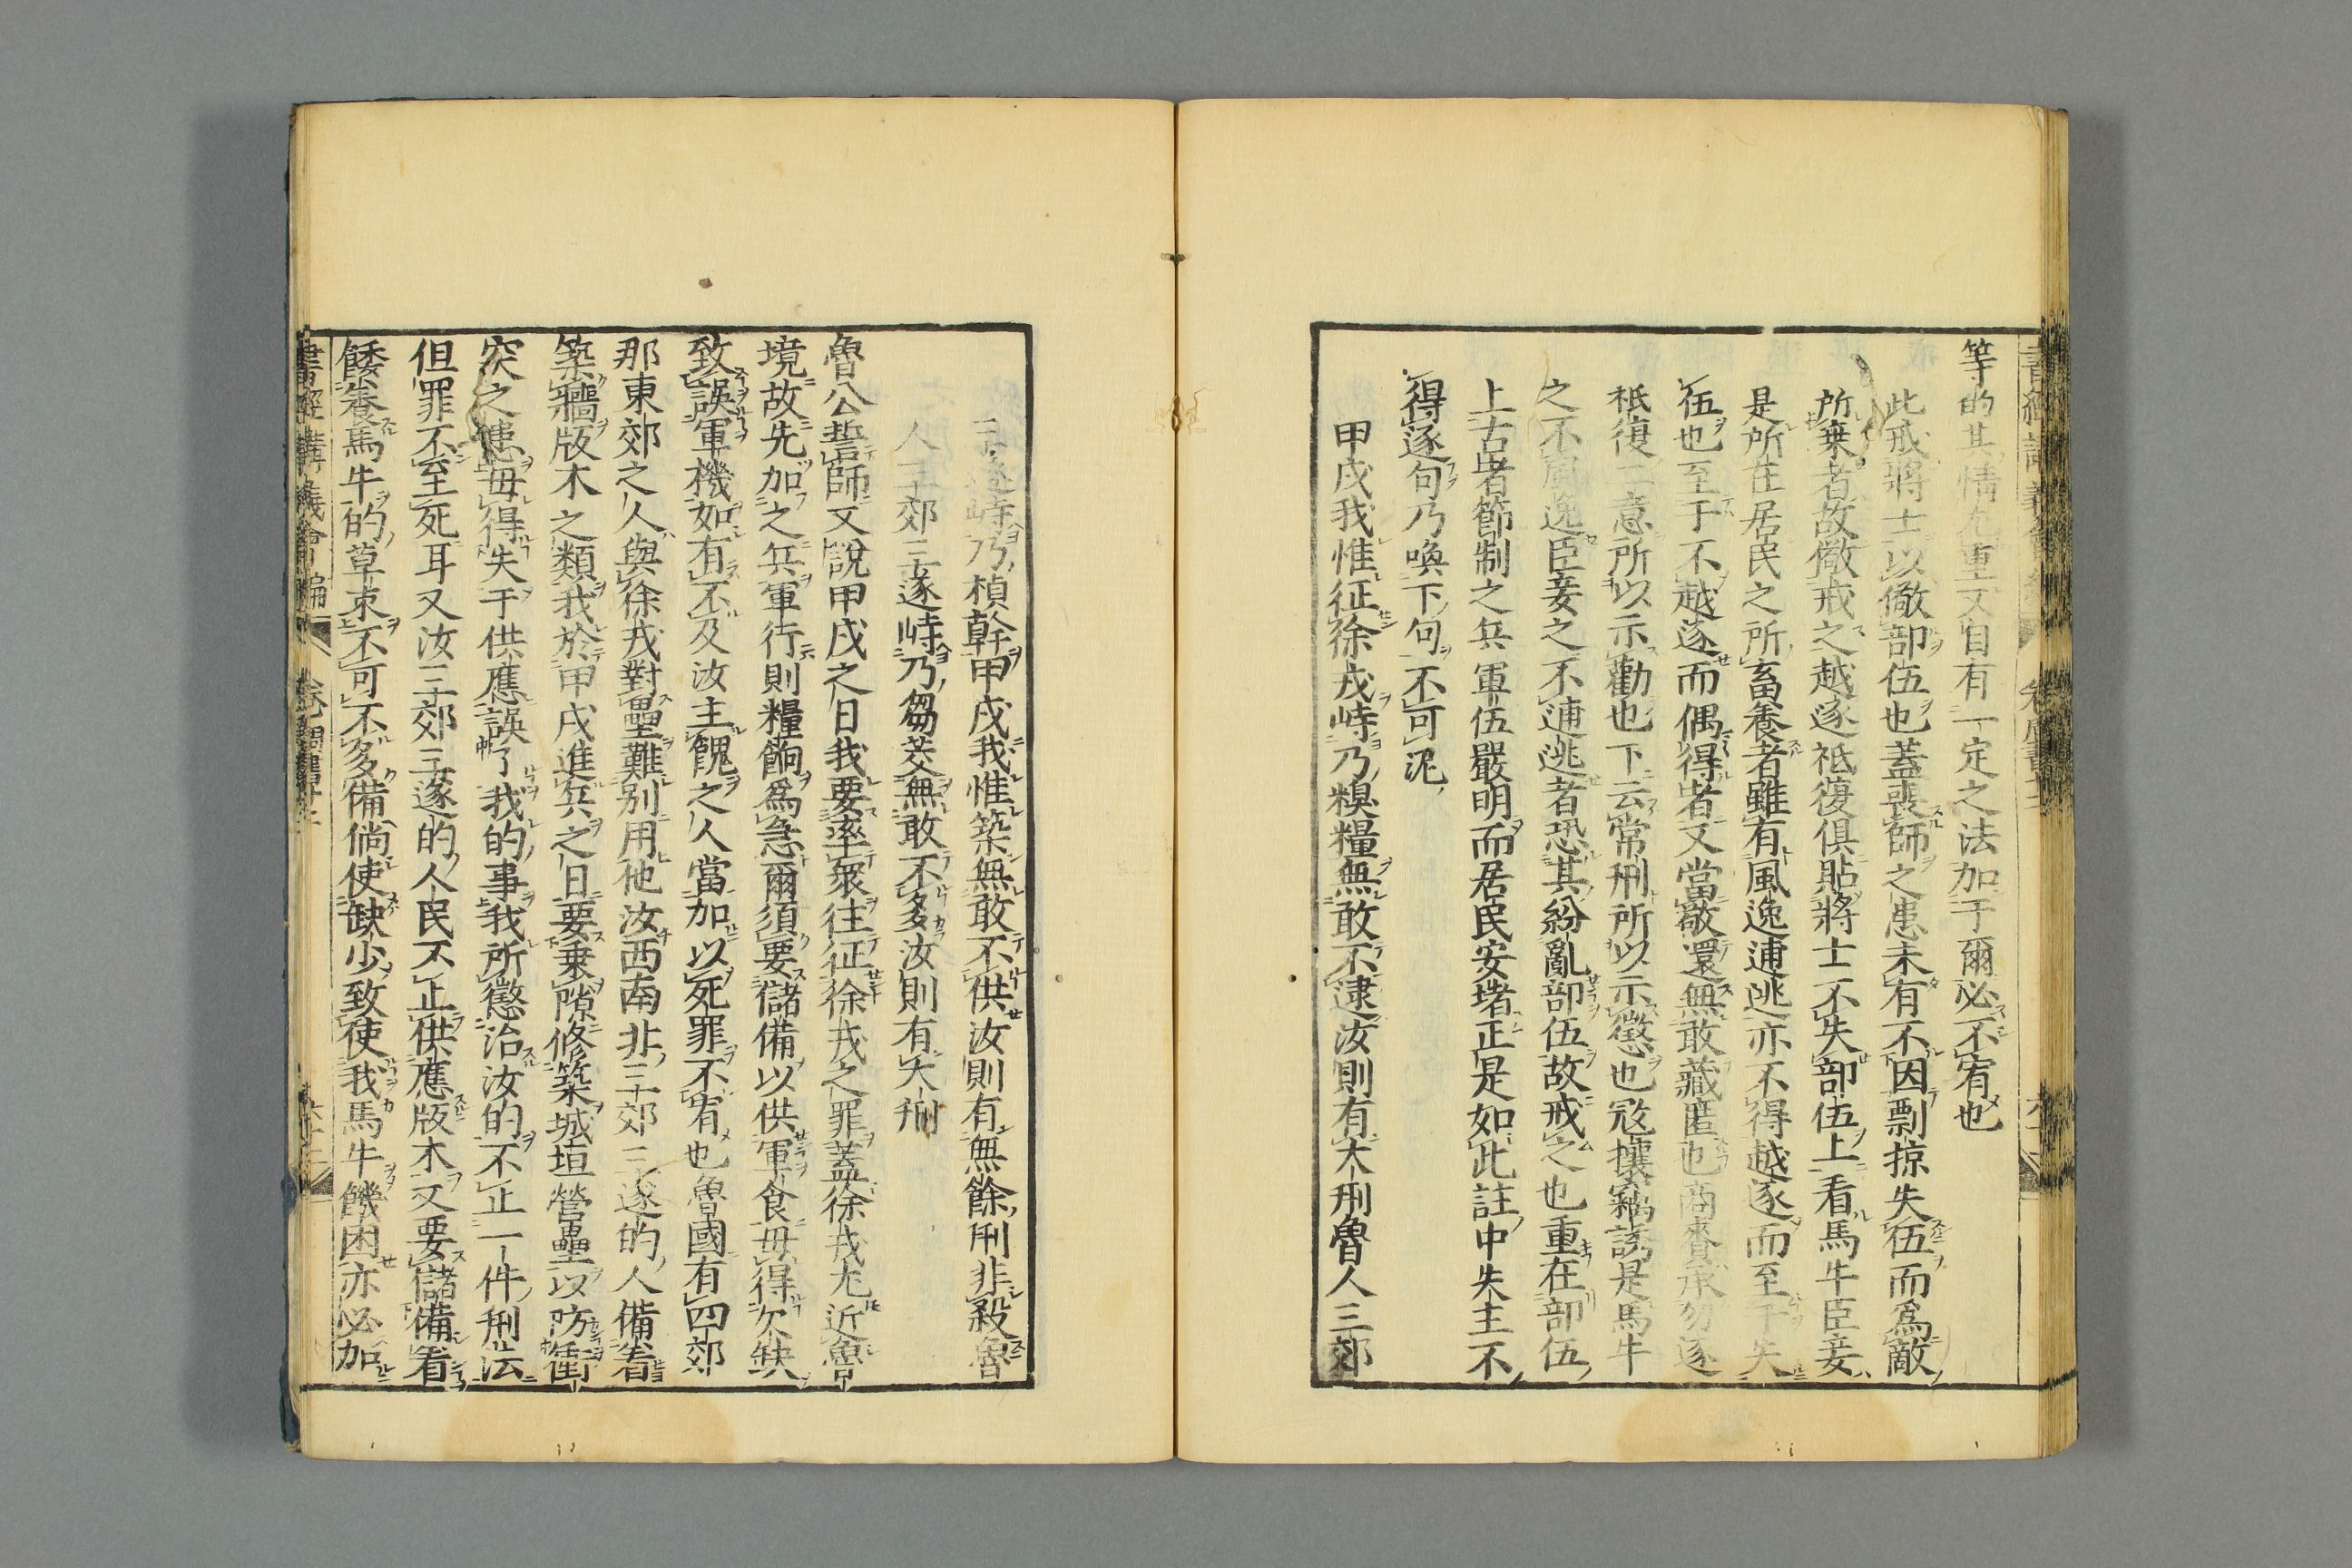 等的其情尤重又自有一定之法加于爾必不宥也
此戒將士以儆部伍也蓋喪師之患未有不因剽掠失伍而爲敵
所乗者故儆戒之越逐祗復俱貼將士不失部伍上看馬牛臣妾
是所在居民之所畜養者雖有風逸逋逃亦不得越逐而至于失
伍也至于不越逐而偶得者又當敬還無敢藏匿也商賚承勿逐
祗復二意所以示勸也下云常刑所以示懲也寇攘竊誘是馬牛
之不風逸臣妾之不逋逃者恐其紛亂部伍故戒之也重在部伍
上古者節制之兵軍伍嚴明而居民安堵正是如此註中失主不
得逐句乃喚下句不可泥
甲戌我惟征徐戎峙乃糗糧無敢不逮汝則有大刑魯人三郊
三遂峙乃楨榦甲戌我惟築無敢不供汝則有無餘刑非殺魯
人三郊三遂峙乃芻茭無敢不多汝則有大刑
魯公誓師又說甲戌之日我要率衆往征徐戎之罪蓋徐戎尤近魯
境故先加之兵軍行則糧餉爲急爾須要儲備以供軍食毋得欠缺
致誤軍機如有不及汝主餽之人當加以死罪不宥也魯國有四郊
那東郊之人與徐戎對壘難别用他汝西南非三郊三遂的人備着
築牆版木之類我於甲戌進兵之日要乗隙修築城垣營壘以防衝
突之患毋得失于供應誤了我的事我所懲治汝的不止一件刑法
但罪不至死耳又汝三郊三遂的人民不止供應版木又要儲備着
餧養馬牛的草束不可不多備倘使缺少致使我馬牛饑困亦必加
書經講義會編